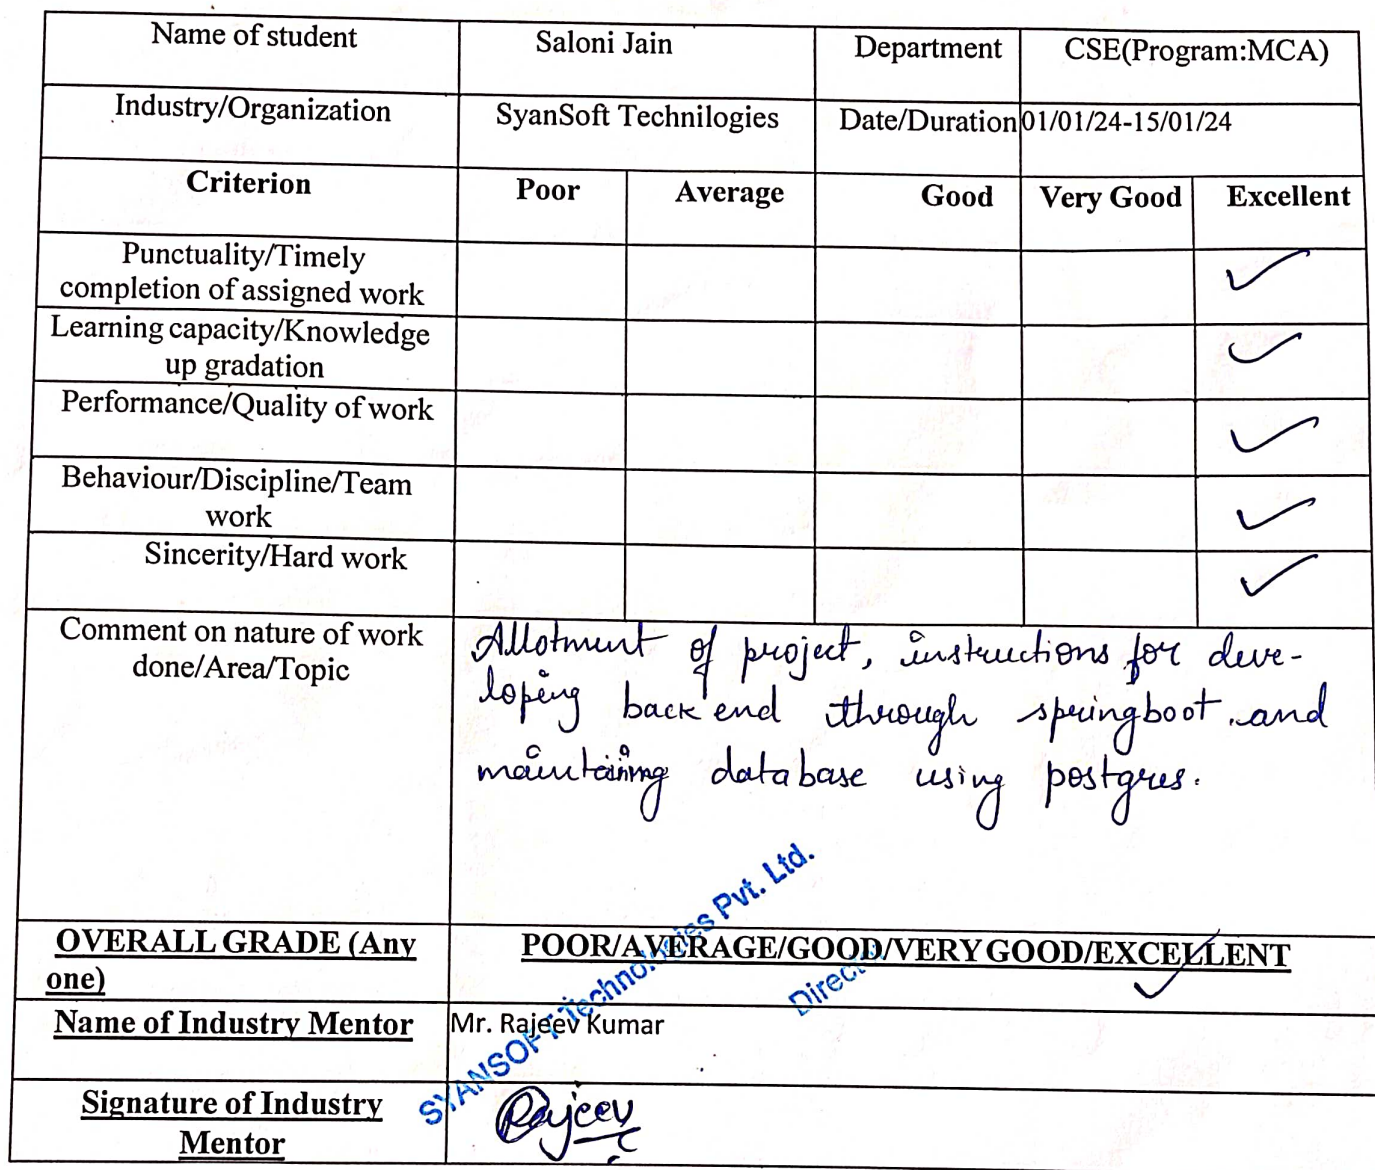 Name of student Saloni Jain Department CSE(Program:MCA)
Industry/Organization SyanSoft Technilogies Date/Duration 01/01/24-15/01/24
Criterion Poor Average Good Very Good Excellent
Punctuality/Timely
completion of assigned work ✓
Learning capacity/Knowledge
up gradation ✓
Performance/Quality of work ✓
Behaviour/Discipline/Team
work ✓
Sincerity/Hard work ✓
Comment on nature of work
done/Area/Topic
Allotment of project, instructions for deve-
loping back end through springboot and
maintaining database using postgres.
OVERALL GRADE (Any
one)
POOR/AVERAGE/GOOD/VERY GOOD/EXCELLENT ✓
Name of Industry Mentor Mr. Rajeev Kumar
SYANSOFT Technologies Pvt. Ltd.
Signature of Industry
Mentor
Rajeev